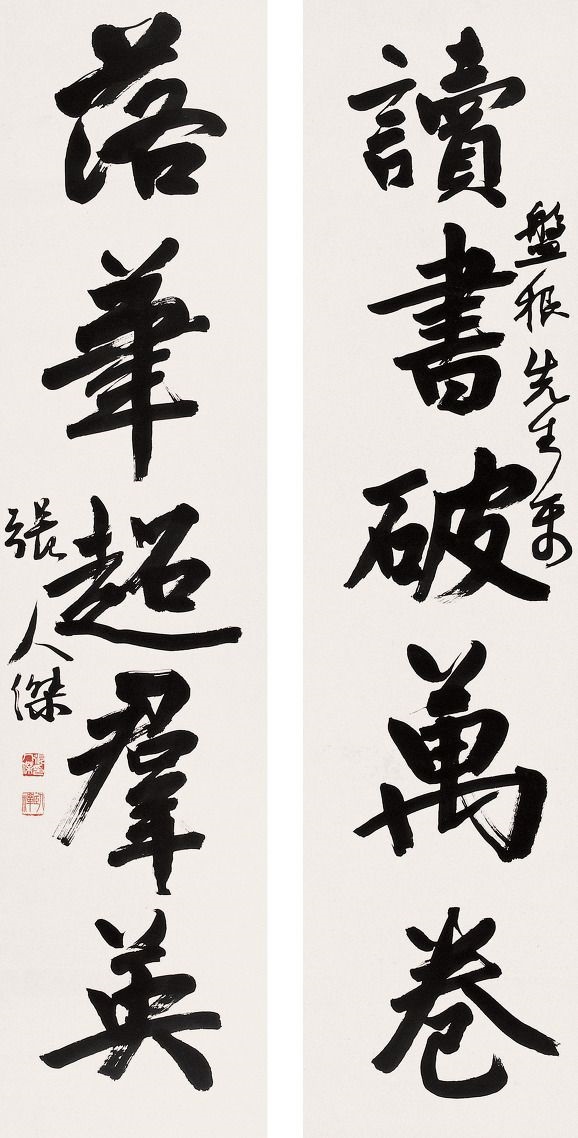 讀書破萬卷
盤根先生
落筆超羣英
張人傑